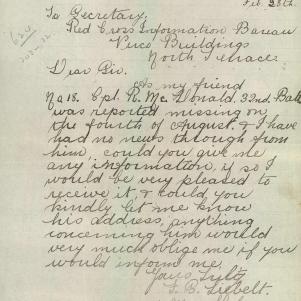 Feb. 28th.
To Secretary,
Red Cross Information Bureau
Buildings
North Terrace.
Dear Sir,
As my friend
Cpl. R. McDonald, 32nd. Batt
was reported missing on
the fourth of August, & I have
had no news through from
him, could you give me
any information, if so I
would be very pleased to
receive it, & could you
kindly let me know
his address, anything
concerning him would
very much oblige me if you
would inform me.
Yours Truly
B. Liebelt.